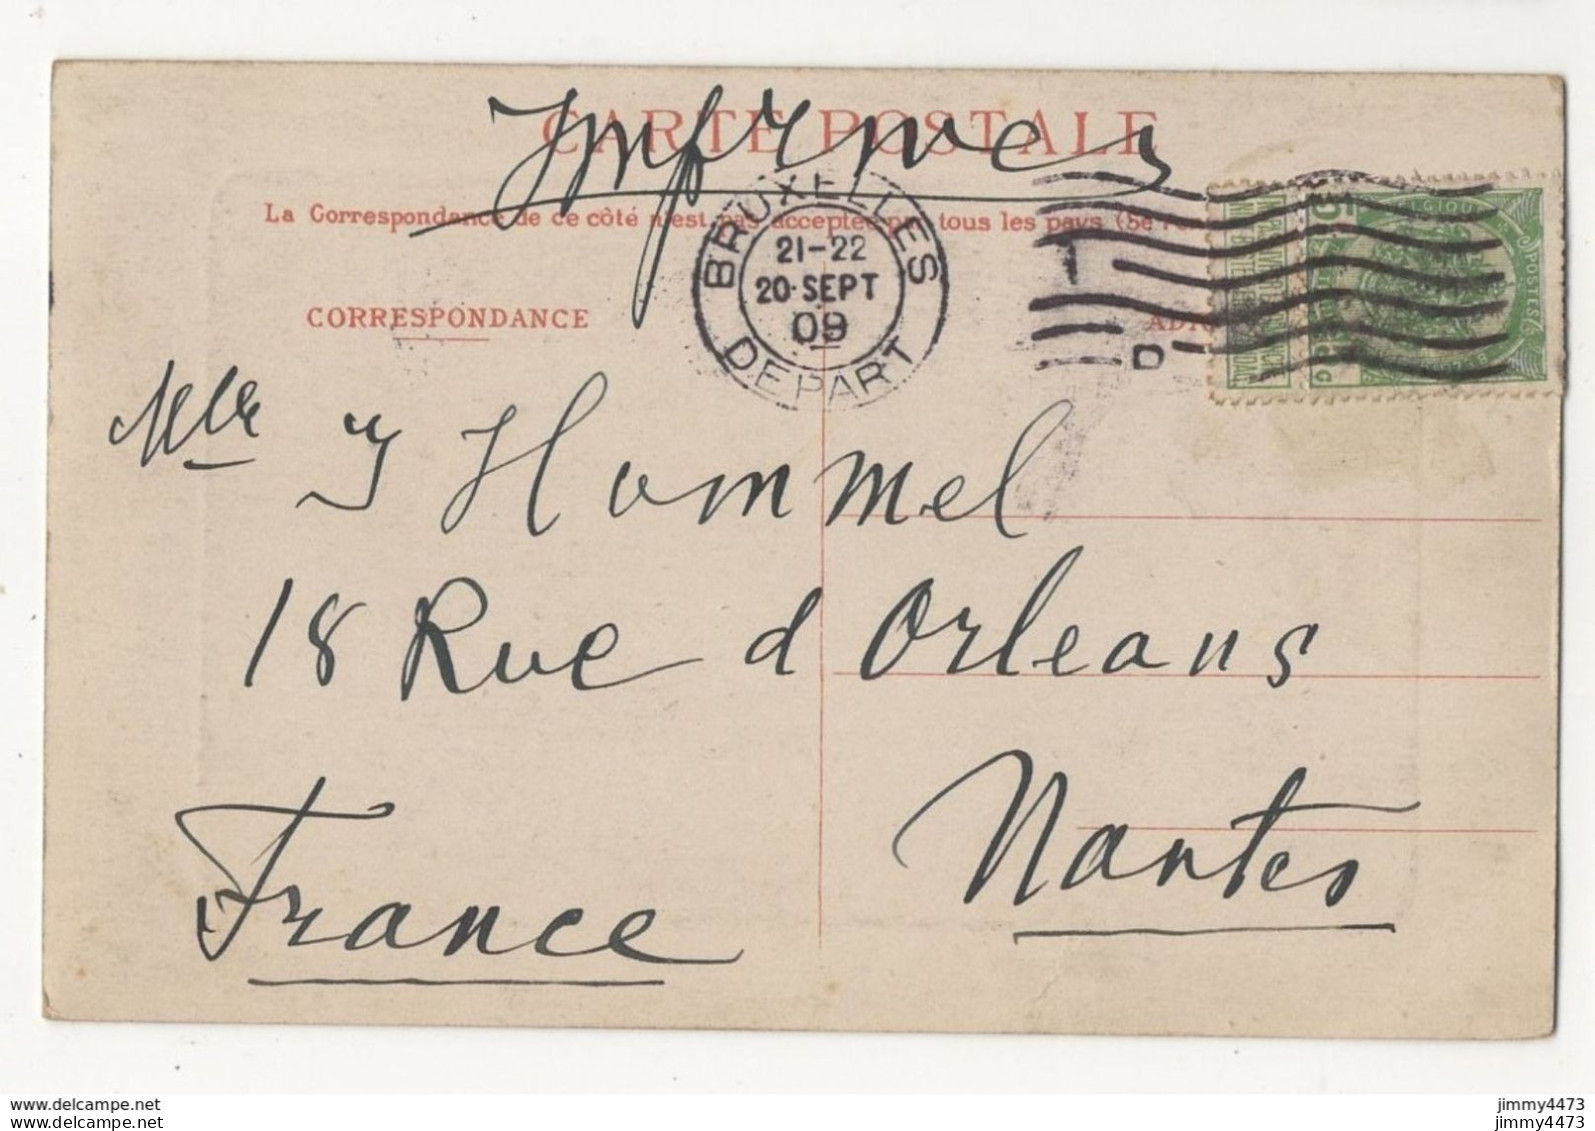 CARTE POSTALE
Imprimés
La Correspondance de ce côté n'est pas acceptée par tous les pays (Se
BRUXELLES
21-22
20 SEPT
09
DEPART
1
D
BELGIQUE
POSTES
5
CORRESPONDANCE
Mlle Y Hommel
18 Rue d Orleans
Nantes
France
delcampe.net
jimmy4473
delcampe.net
jimmy4473